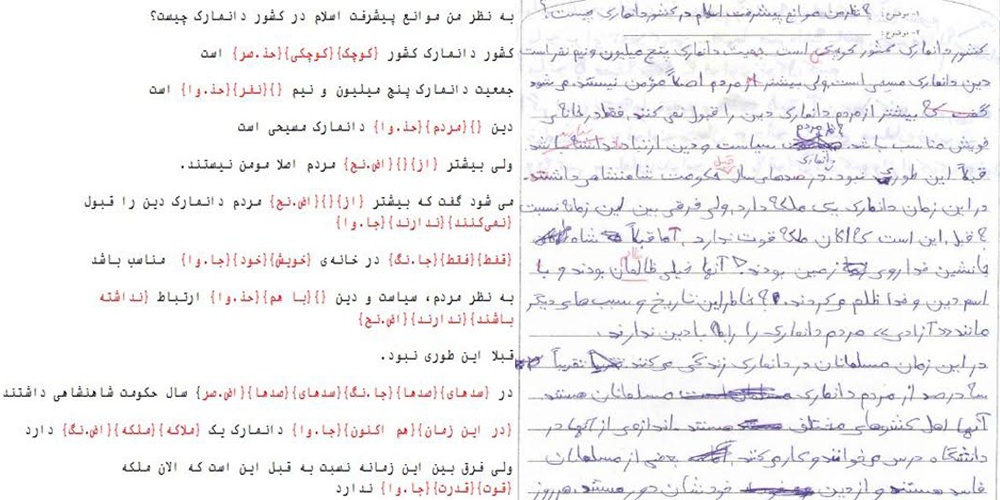 ۱- موضوع: به نظر من موانع پیشرفت اسلام در کشور دانمارک چیست؟
۲- موضوع:
کشور دانمارک کشور کوچکی است. جمعیت دانمارک پنج میلیون و نیم نفر است
دین دانمارک مسیحی است، ولی بیشتر از مردم اصلاً مؤمن نیستند. می شود
گفت که بیشتر از مردم دانمارک دین را قبول نمی کنند. فقط در خانه ی
خویش مناسب باشد. به نظر مردم دانمارک سیاست و دین ارتباط نداشته باشد
قبلاً این طوری نبود. در صدهای سال حکومت شاهنشاهی داشتند.
در این زمان دانمارک یک ملکه دارد، ولی فرقی بین این زمانه نسبت
به قبل، این است که الان ملکه قوت ندارد. اما قبلاً شاه
جانشین خدا روی زمین بودند. آنها خیلی ظالمان بودند و با
اسم دین و خدا ظلم می کردند. به خاطر این تاریخ و سبب های دیگر
مانند «آزادی» مردم دانمارک را رابطه با دین ندارند.
در این زمان مسلمانان در دانمارک زندگی می کنند. تقریباً
درصد از مردم دانمارک مسلمانان هستند
آنها اهل کشورهای مختلف هستند. اندازه ی از آنها در
دانشگاه درس می خوانند و کار می کنند. بعضی از مسلمانان
فاسد هستند و از دین خودشان دور هستند. هر روز
به نظر من موانع پیشرفت اسلام در کشور دانمارک چیست؟
کشور دانمارک کشور {کوچک}{کوچکی}{حذ.صر} است
جمعیت دانمارک پنج میلیون و نیم {}{نفر}{حذ.وا} است
دین {}{مردم}{حذ.وا} دانمارک مسیحی است
ولی بیشتر {از}{}{اض.نح} مردم اصلا مومن نیستند.
می شود گفت که بیشتر {از}{}{اض.نح} مردم دانمارک دین را قبول
{نمی‌کنند}{ندارند}{جا.وا}
{قفط}{فقط}{جا.نگ} در خانه‌ی {خویش}{خود}{جا.وا} مناسب باشد
به نظر مردم، سیاست و دین {}{با هم}{حذ.وا} ارتباط {نداشته
باشند}{ندارند}{اض.نح}
قبلا این طوری نبود.
در {سدهای}{صدها}{جا.نگ}{سدهای}{صدها}{اض.صر} سال حکومت شاهنشاهی داشتند
{در این زمان}{هم اکنون}{جا.وا} دانمارک یک {ملاکه}{ملکه}{اض.نگ} دارد
ولی فرق بین این زمانه نسبت به قبل این است که الان ملکه
{قوت}{قدرت}{جا.وا} ندارد